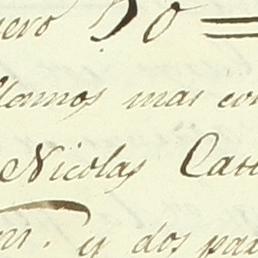 uero 20
llamos mas con
Nicolas Cast
m. y dos pax